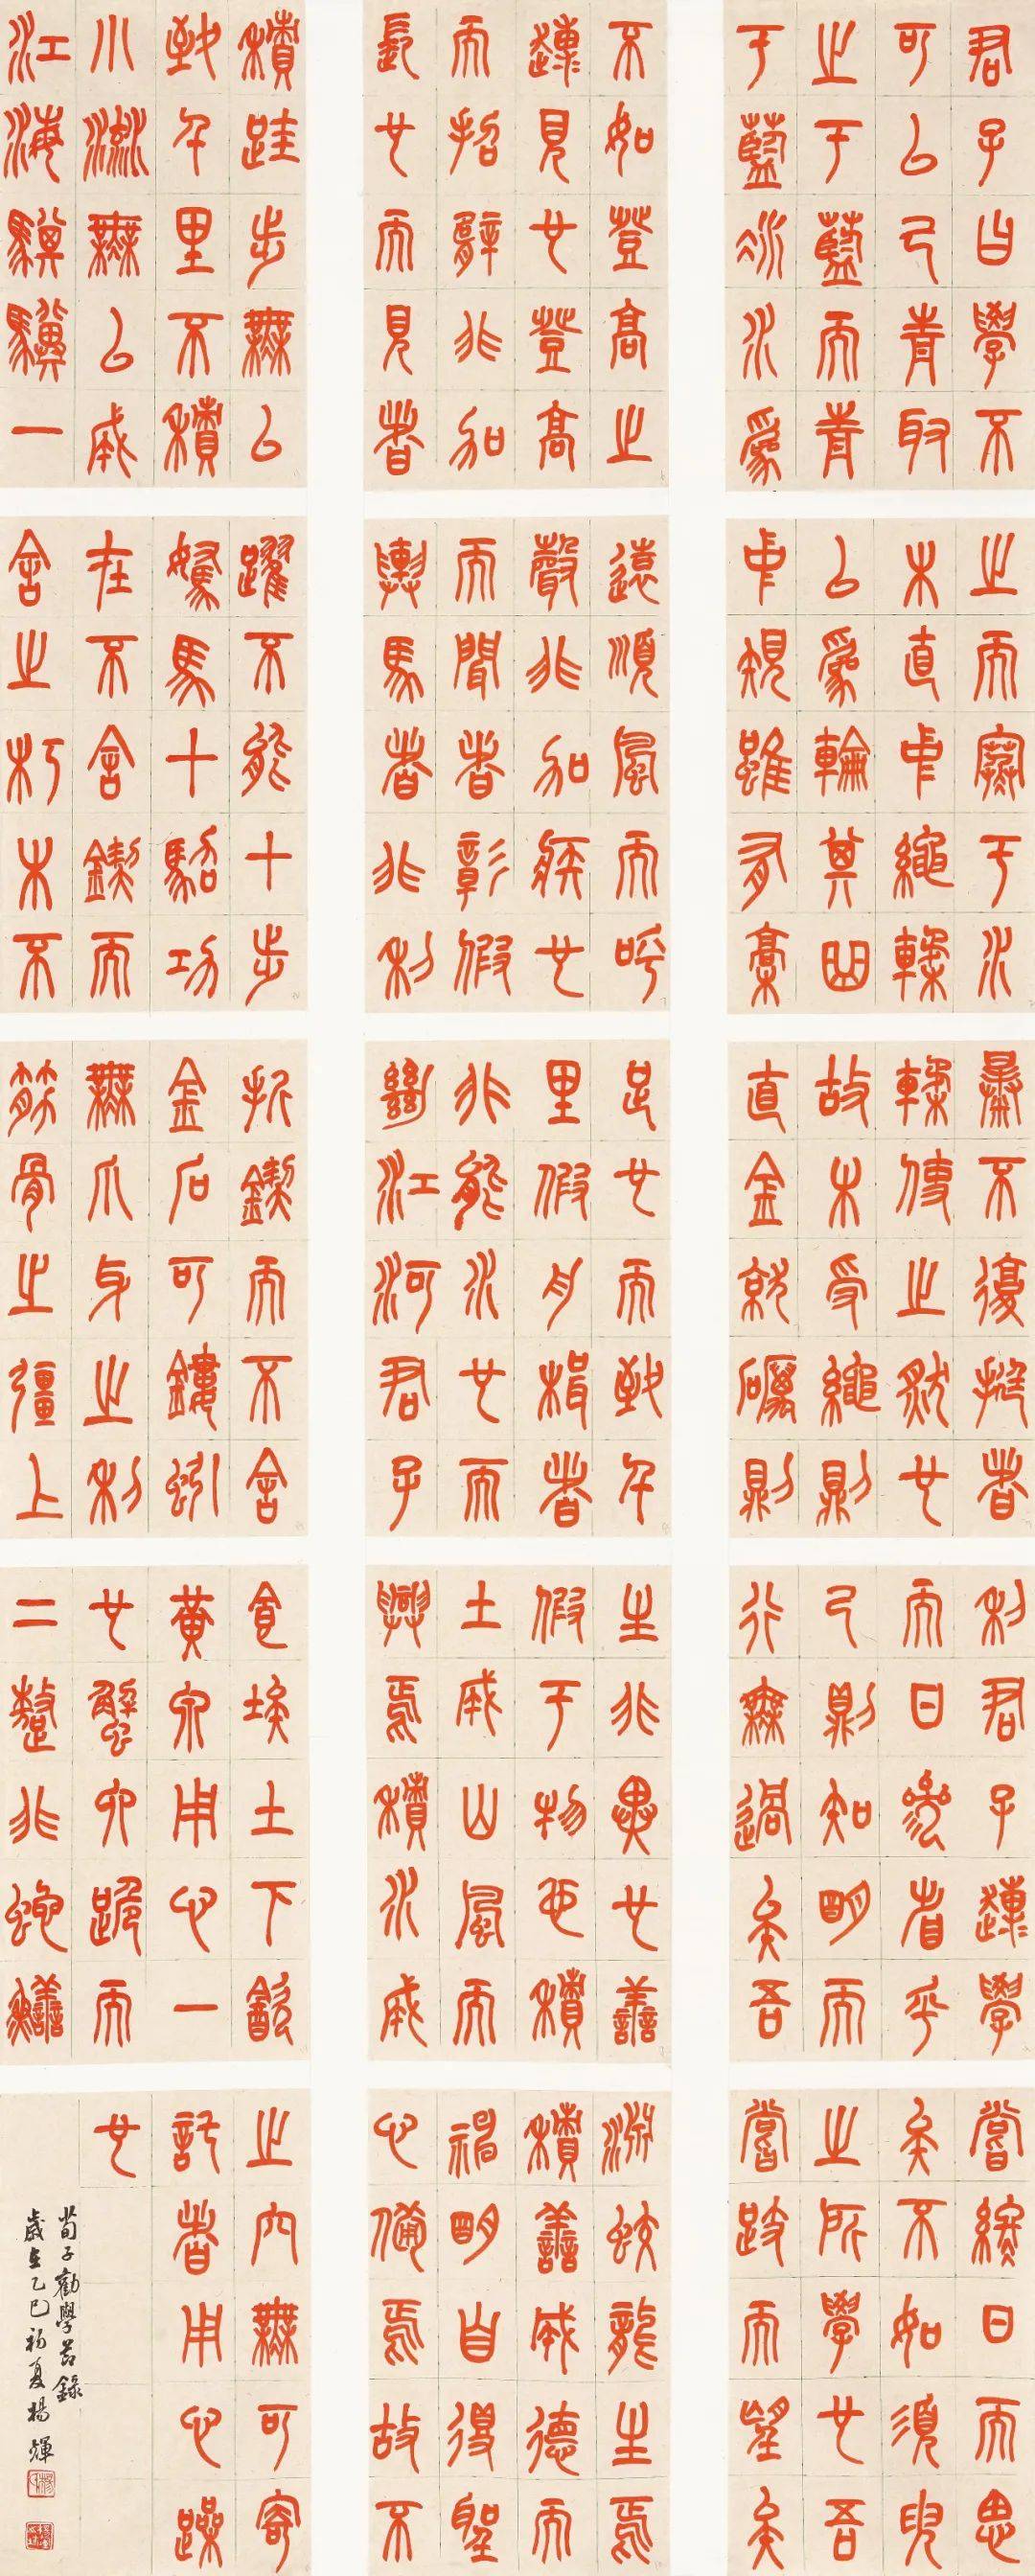 君子曰學不
可以已青取
之于藍而青
于藍冰水為
之而寒于水
木直中繩輮
以為輪其曲
中規雖有槁
暴不復挺者
輮使之然也
故木受繩則
直金就礪則
利君子博學
而日參省乎
己則知明而
行無過矣吾
嘗終日而思
矣不如須臾
之所學也吾
嘗跂而望矣
不如登高之
博見也登高
而招臂非加
長也而見者
遠順風而呼
聲非加疾也
而聞者彰假
輿馬者非利
足也而致千
里假舟楫者
非能水也而
絕江河君子
生非異也善
假于物也積
土成山風雨
興焉積水成
淵蛟龍生焉
積善成德而
神明自得聖
心備焉故不
積跬步無以
致千里不積
小流無以成
江海騏驥一
躍不能十步
駑馬十駕功
在不舍鍥而
舍之朽木不
折鍥而不舍
金石可鏤蚓
無爪牙之利
筋骨之彊上
食埃土下飲
黃泉用心一
也蟹六跪而
二螯非蛇鱔
之穴無可寄
託者用心躁
也
荀子勸學節錄
歲在乙巳初夏楊輝